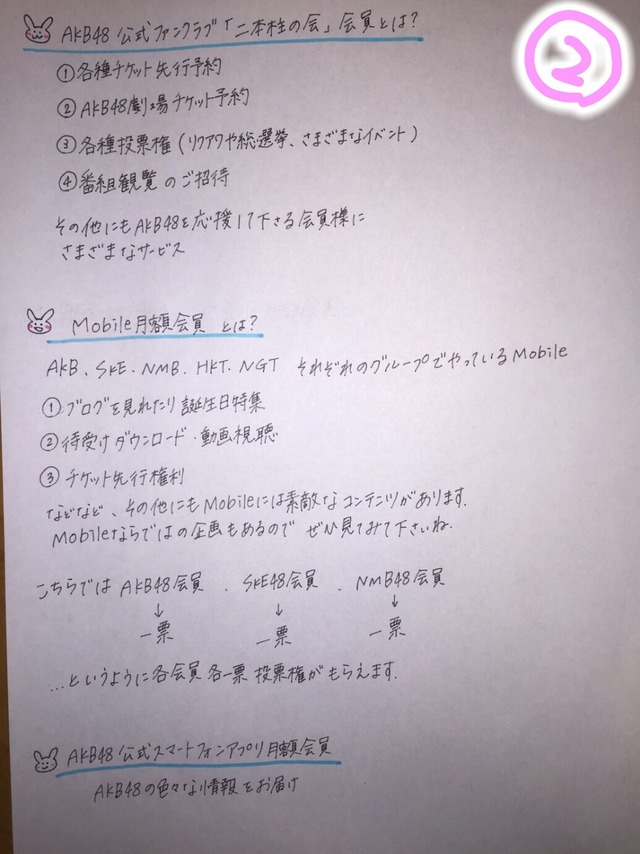 AKB48 公式ファンクラブ「二本柱の会」会員とは?
②
①各種チケット先行予約
②AKB48劇場チケット予約
③各種投票権(リクアワや総選挙、さまざまなイベント)
④番組観覧のご招待
その他にもAKB48を応援して下さる会員様に
さまざまなサービス
Mobile月額会員 とは?
AKB、SKE、NMB、HKT、NGT それぞれのグループでやっているMobile
①ブログを見れたり誕生日特集
②待受けダウンロード・動画視聴
③チケット先行権利
などなど、その他にもMobileには素敵なコンテンツがあります.
Mobileならではの企画もあるので ぜひ見てみて下さいね.
こちらでは AKB48会員 、SKE48会員 、NMB48会員
↓ ↓ ↓
一票 一票 一票
...というように各会員 各一票 投票権がもらえます.
AKB48公式スマートフォンアプリ月額会員
AKB48の色々な情報をお届け